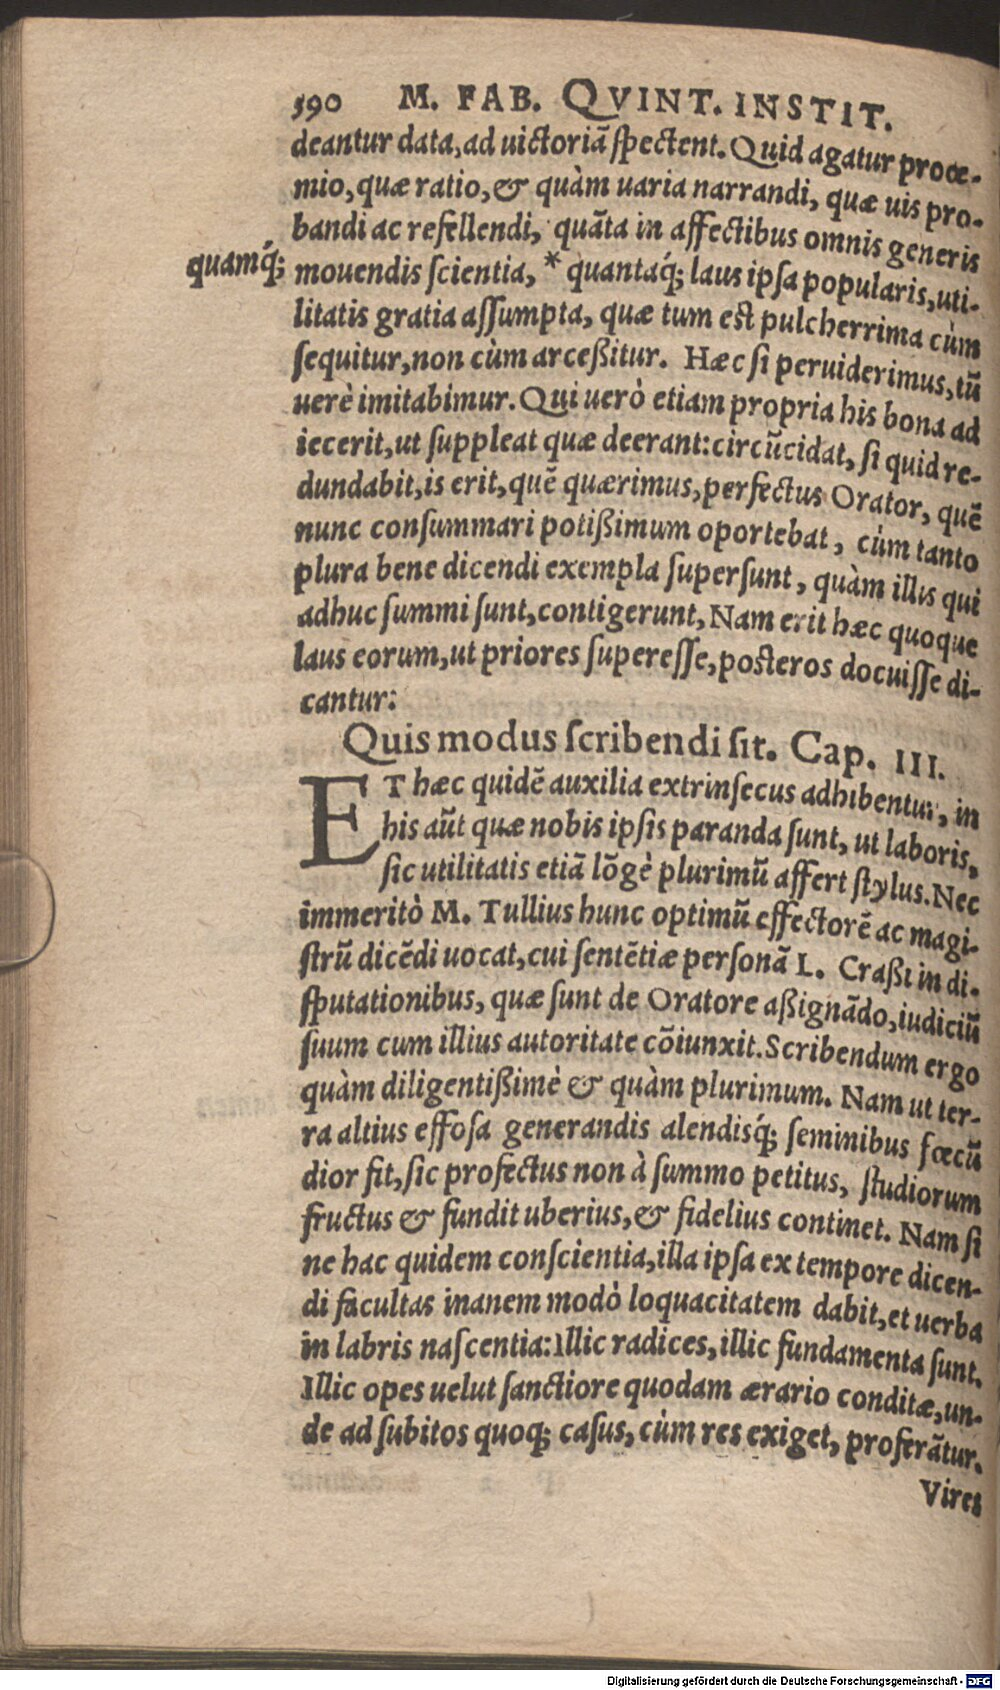 590 M. FAB. QVINT. INSTIT.
deantur data, ad uictoriã spectent. Quid agatur procœ-
mio, quæ ratio, & quàm uaria narrandi, quæ uis pro-
bandi ac refellendi, quãta in affectibus omnis generis
quamq́;
mouendis scientia, * quantaq́; laus ipsa popularis, uti-
litatis gratia assumpta, quæ tum est pulcherrima cùm
sequitur, non cùm arceßitur. Hæc si peruiderimus, tũ
uerè imitabimur. Qui uerò etiam propria his bona ad
iecerit, ut suppleat quæ deerant: circũcidat, si quid re-
dundabit, is erit, quẽ quærimus, perfectus Orator, quẽ
nunc consummari potißimum oportebat, cùm tanto
plura bene dicendi exempla supersunt, quàm illis qui
adhuc summi sunt, contigerunt, Nam erit hæc quoque
laus eorum, ut priores superesse, posteros docuisse di-
cantur:
Quis modus scribendi sit. Cap. III.
ET hæc quidẽ auxilia extrinsecus adhibentur, in
his aũt quæ nobis ipsis paranda sunt, ut laboris,
sic utilitatis etiã lõgè plurimũ affert stylus. Nec
immeritò M. Tullius hunc optimũ effectorẽ ac magi-
strũ dicẽdi uocat, cui sentẽtiæ personã L. Craßi in di-
sputationibus, quæ sunt de Oratore aßignãdo, iudiciũ
suum cum illius autoritate cõiunxit. Scribendum ergo
quàm diligentißimè & quàm plurimum. Nam ut ter-
ra altius effosa generandis alendisq́; seminibus fœcũ
dior fit, sic profectus non à summo petitus, studiorum
fructus & fundit uberius, & fidelius continet. Nam si
ne hac quidem conscientia, illa ipsa ex tempore dicen-
di facultas inanem modò loquacitatem dabit, et uerba
in labris nascentia: Illic radices, illic fundamenta sunt.
Illic opes uelut sanctiore quodam ærario conditæ, un-
de ad subitos quoq; casus, cùm res exiget, proferãtur.
Vires
Digitalisierung gefördert durch die Deutsche Forschungsgemeinschaft - DFG